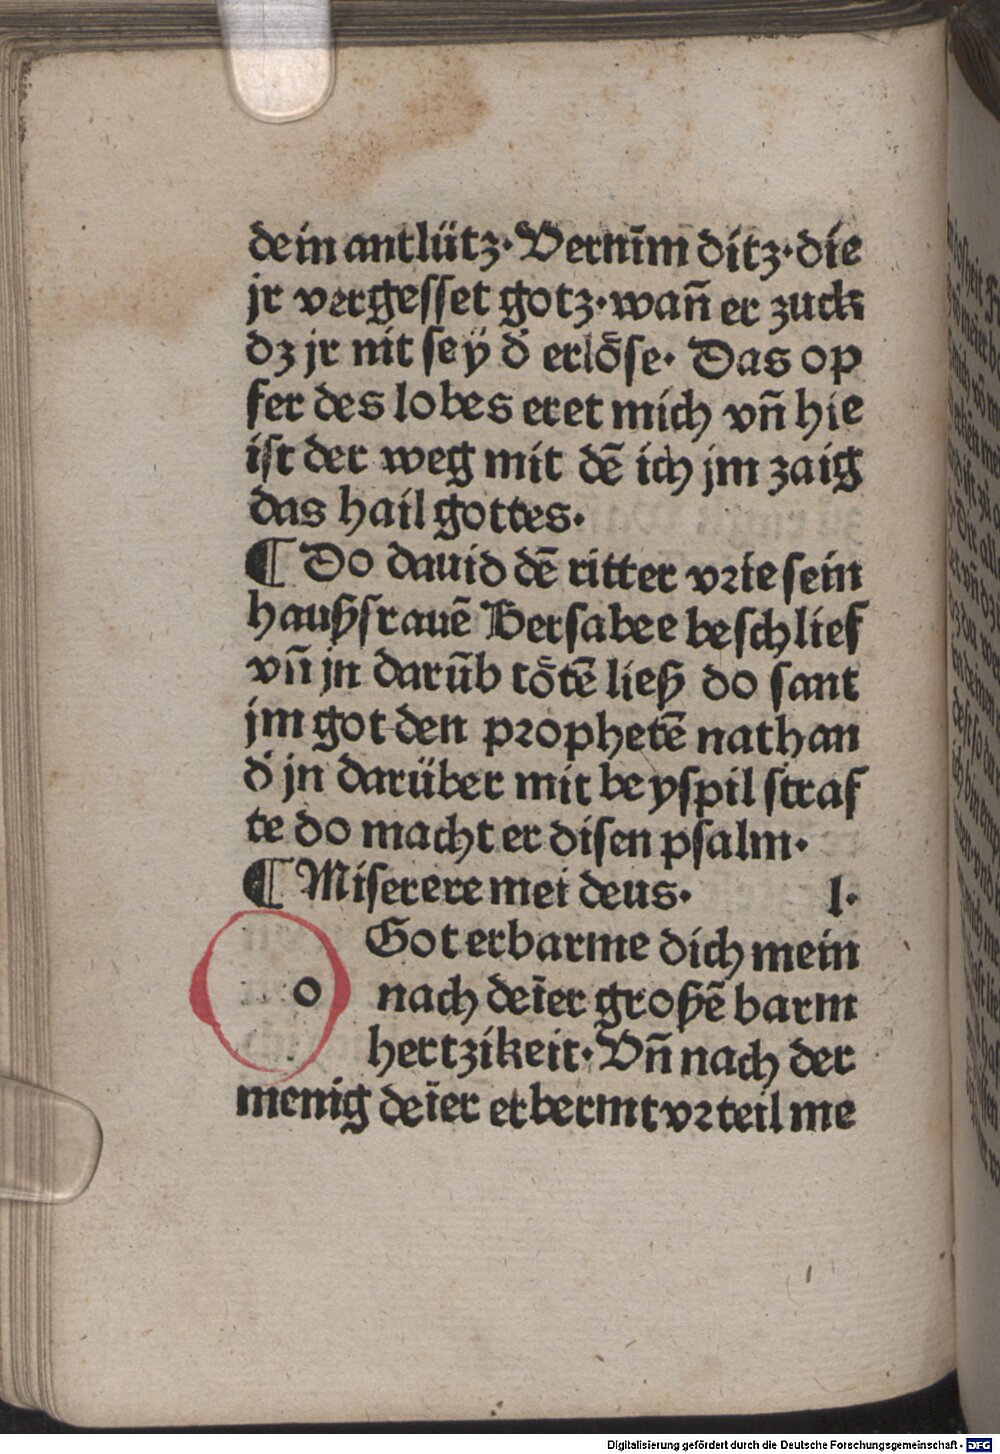 dein antlütz· Vernīm ditz· die
jr vergesset gotz· wañ er zuck
dz jr nit seÿ d̄ erlöse· Das op
fer des lobes eret mich vñ hie
ist der weg mit dē ich jm zaig
das hail gottes·
¶ Do dauid dē ritter vrie sein
haußfrauē Bersabee beschlief
vñ jn darūb tötē ließ do sant
jm got den prophetē nathan
d̄ jn darüber mit beyspil straf
te do macht er disen psalm·
¶ Miserere mei deus· l·
Got erbarme dich mein
o nach deīer großē barm
hertzikeit· Vñ nach der
menig deīer erbermt vrteil me
Digitalisierung gefördert durch die Deutsche Forschungsgemeinschaft - DFG